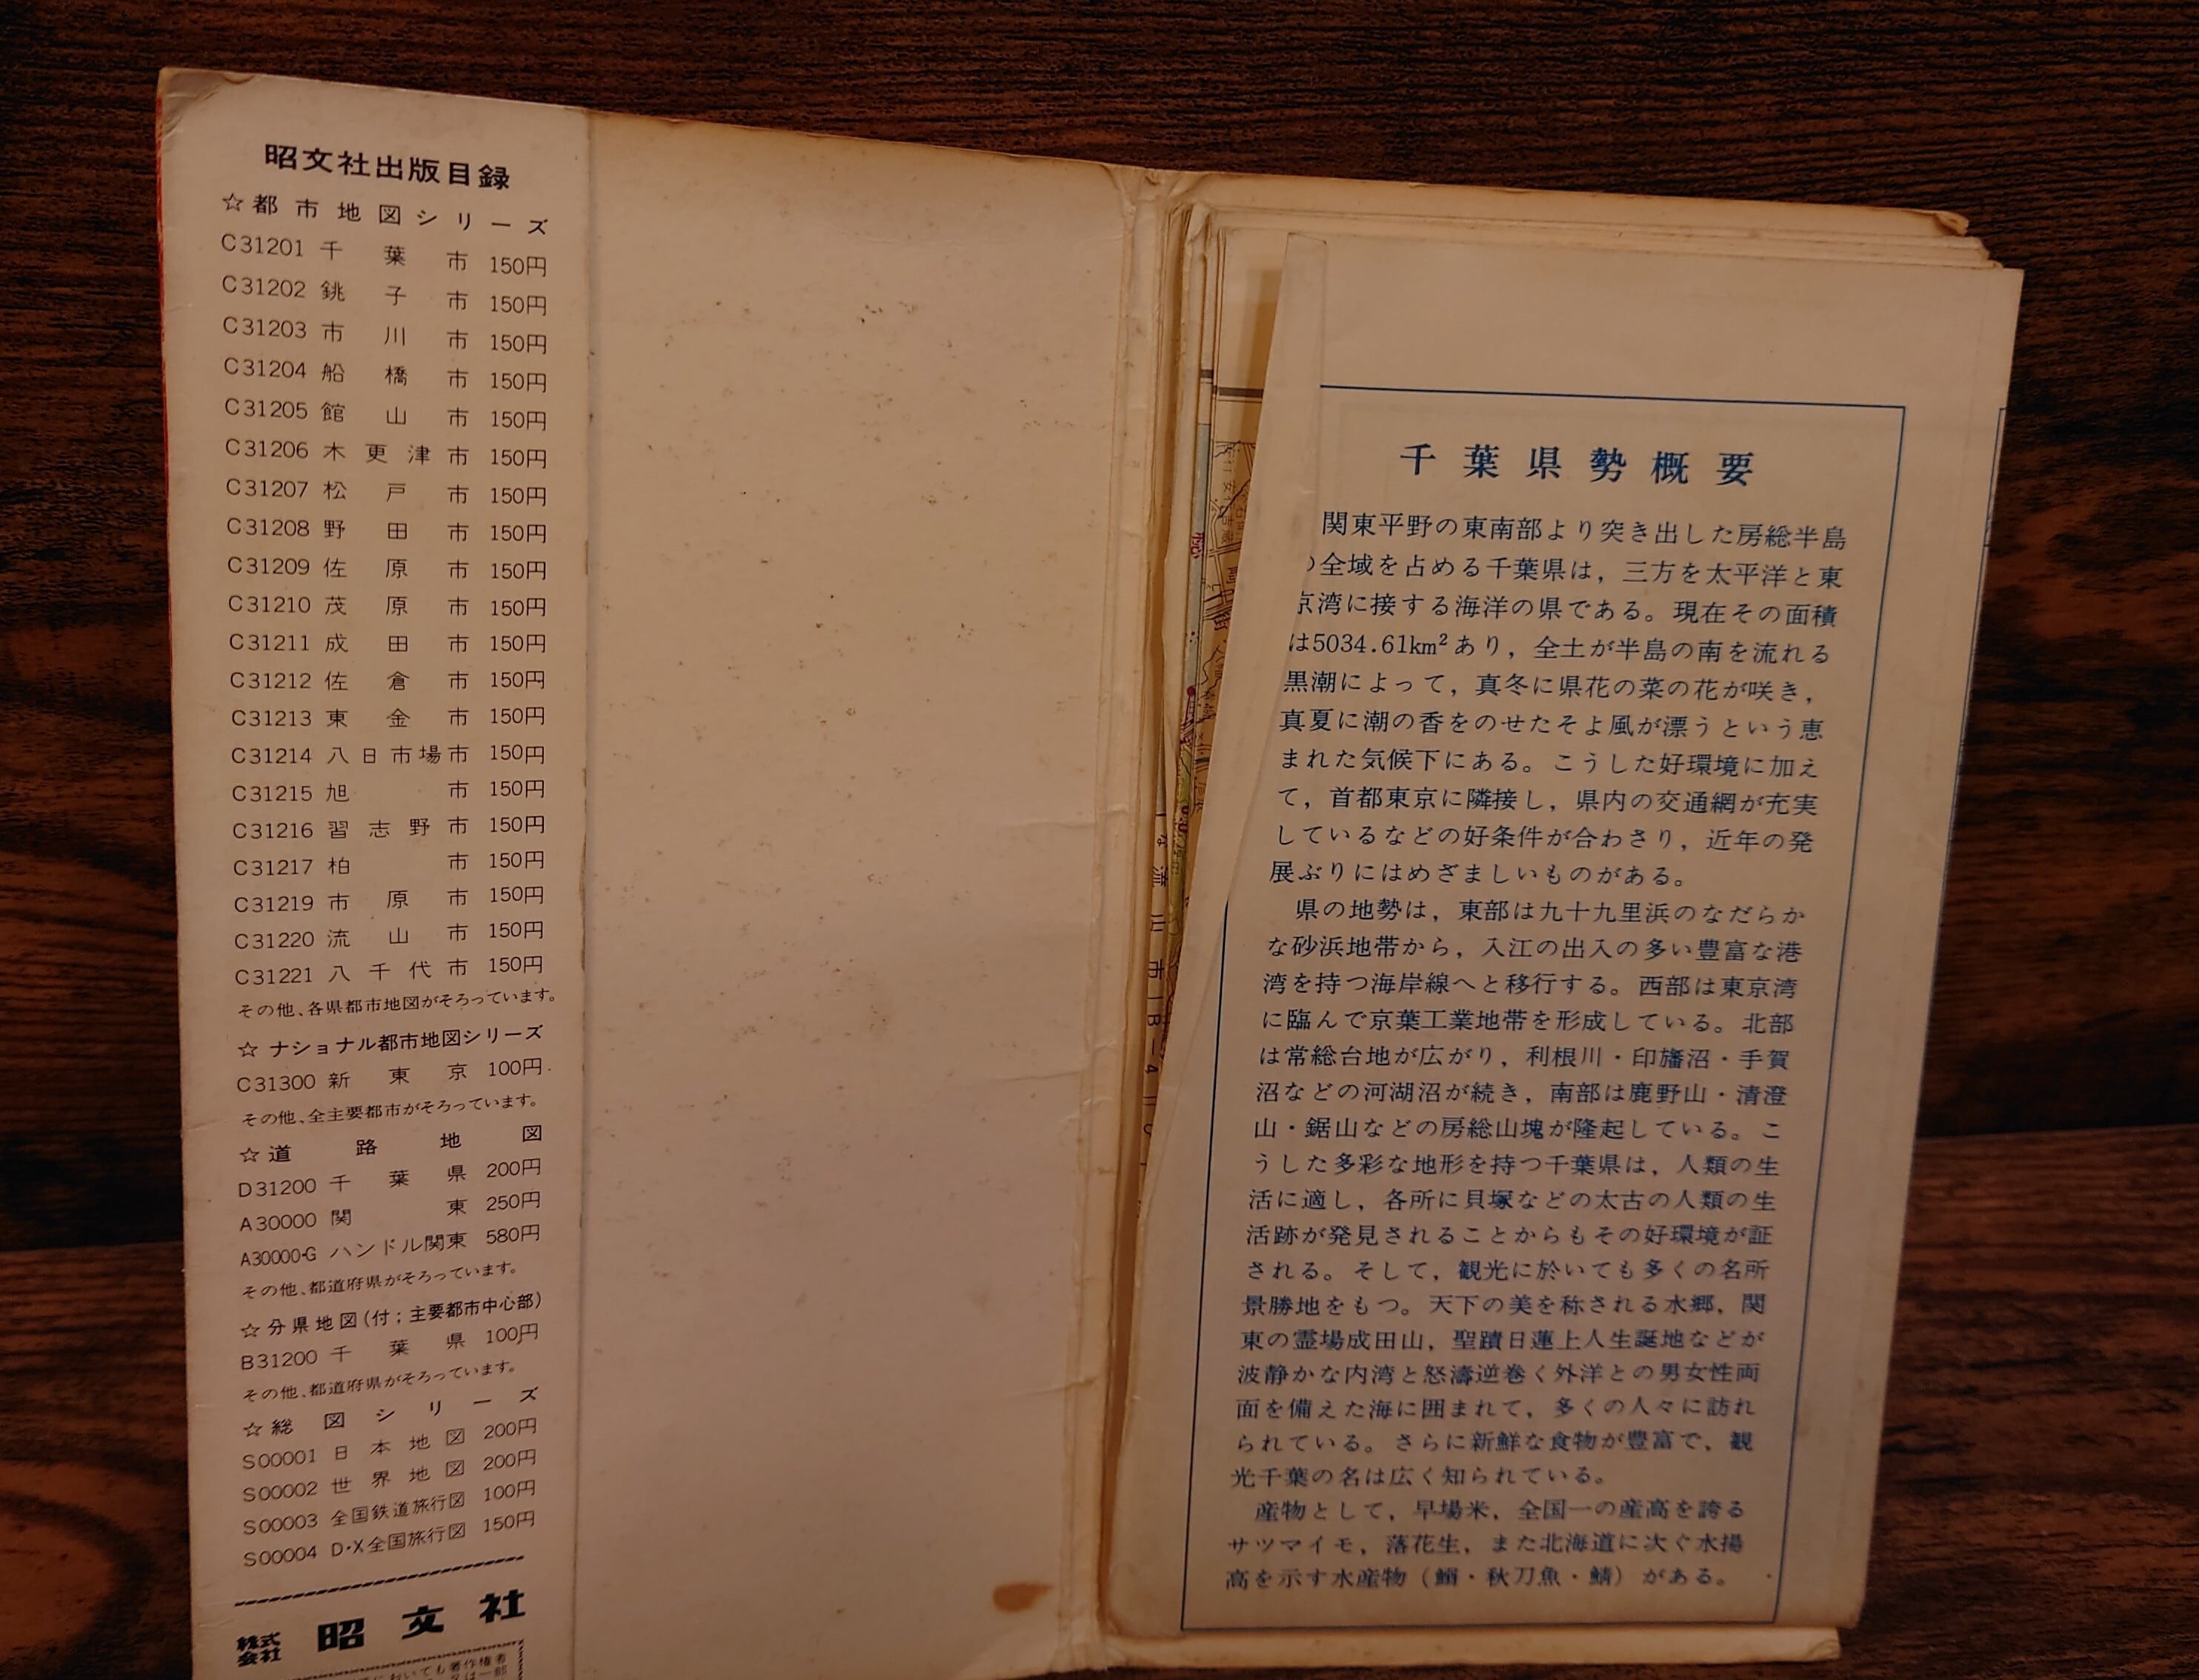 昭文社出版目録
☆都市地図シリーズ
C31201 千葉市 150円
C31202 銚子市 150円
C31203 市川市 150円
C31204 船橋市 150円
C31205 館山市 150円
C31206 木更津市 150円
C31207 松戸市 150円
C31208 野田市 150円
C31209 佐原市 150円
C31210 茂原市 150円
C31211 成田市 150円
C31212 佐倉市 150円
C31213 東金市 150円
C31214 八日市場市 150円
C31215 旭市 150円
C31216 習志野市 150円
C31217 柏市 150円
C31219 市原市 150円
C31220 流山市 150円
C31221 八千代市 150円
その他、各県都市地図がそろっています。
☆ ナショナル都市地図シリーズ
C31300 新東京 100円
その他、全主要都市がそろっています。
☆道路地図
D31200 千葉県 200円
A30000 関東 250円
A30000・G ハンドル関東 580円
その他、都道府県がそろっています。
☆分県地図(付;主要都市中心部)
B31200 千葉県 100円
その他、都道府県がそろっています。
☆総図シリーズ
S00001 日本地図 200円
S00002 世界地図 200円
S00003 全国鉄道旅行図 100円
S00004 D・X全国旅行図 150円
株式会社 昭文社
においても著作権者
流山市
千葉県勢概要
関東平野の東南部より突き出した房総半島
の全域を占める千葉県は，三方を太平洋と東
京湾に接する海洋の県である。現在その面積
は5034.61km²あり，全土が半島の南を流れる
黒潮によって，真冬に県花の菜の花が咲き，
真夏に潮の香をのせたそよ風が漂うという恵
まれた気候下にある。こうした好環境に加え
て，首都東京に隣接し，県内の交通網が充実
しているなどの好条件が合わさり，近年の発
展ぶりにはめざましいものがある。
県の地勢は，東部は九十九里浜のなだらか
な砂浜地帯から，入江の出入の多い豊富な港
湾を持つ海岸線へと移行する。西部は東京湾
に臨んで京葉工業地帯を形成している。北部
は常総台地が広がり，利根川・印旛沼・手賀
沼などの河湖沼が続き，南部は鹿野山・清澄
山・鋸山などの房総山塊が隆起している。こ
うした多彩な地形を持つ千葉県は，人類の生
活に適し，各所に貝塚などの太古の人類の生
活跡が発見されることからもその好環境が証
される。そして，観光に於いても多くの名所
景勝地をもつ。天下の美を称される水郷，関
東の霊場成田山，聖蹟日蓮上人生誕地などが
波静かな内湾と怒濤逆巻く外洋との男女性両
面を備えた海に囲まれて，多くの人々に訪れ
られている。さらに新鮮な食物が豊富で，観
光千葉の名は広く知られている。
産物として，早場米，全国一の産高を誇る
サツマイモ，落花生，また北海道に次ぐ水揚
高を示す水産物（鰯・秋刀魚・鯖）がある。